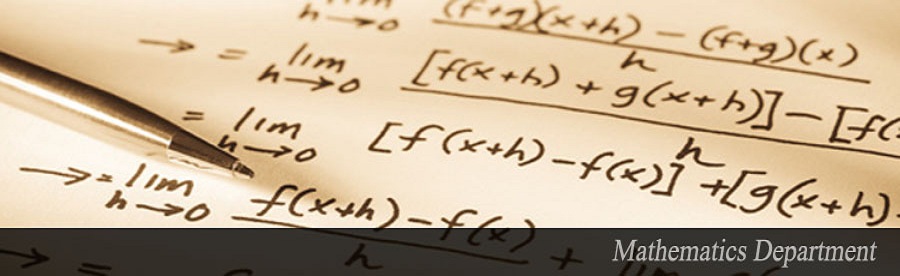 lim h→0 (f+g)(x+h) − (f+g)(x)
h
→ = lim h→0 [f(x+h) + g(x+h)] − [f(
h
= lim h→0 [f(x+h) − f(x)] + [g(x+h) −
→ = lim h→0 f(x+h) − f(x) +
h
→ =
Mathematics Department